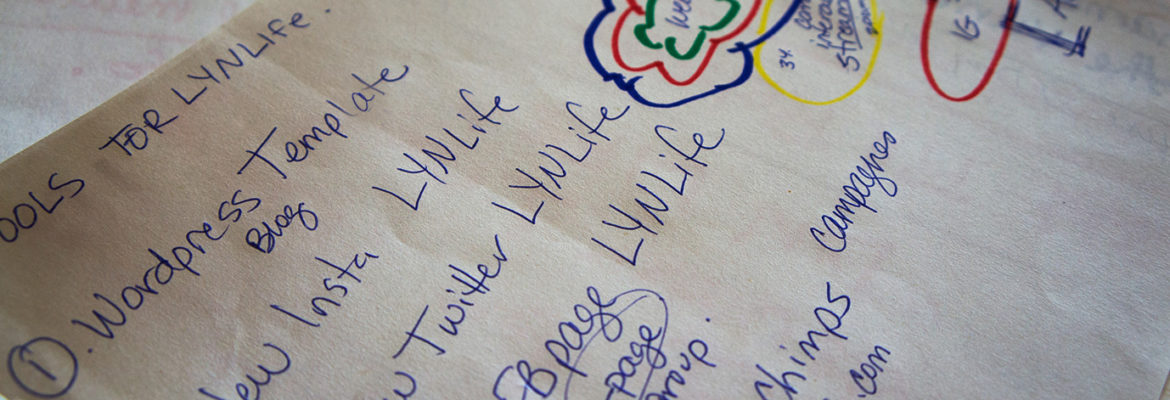 OOLS FOR LYNLife.
① . Wordpress Template
Blog
ew Insta LYNLife
w Twitter LYNLife
FB page LYNLife
page
group.
Chimps campagnes
.com
34
Stream
IG